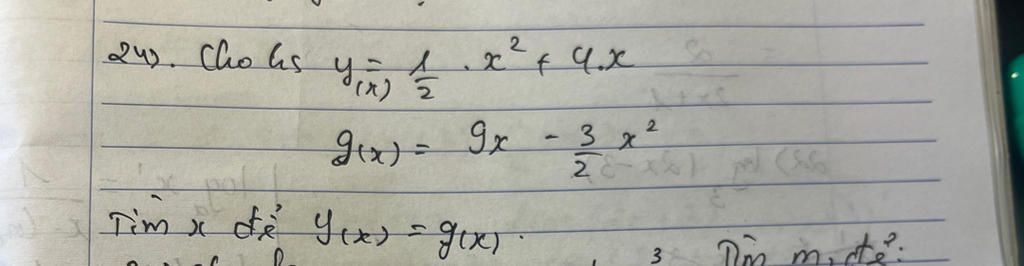 24). Cho hs y(x) = 1/2 . x² + 4.x
g(x) = 9x - 3/2 x²
Tìm x để y(x) = g(x).
3 Tìm m, để: